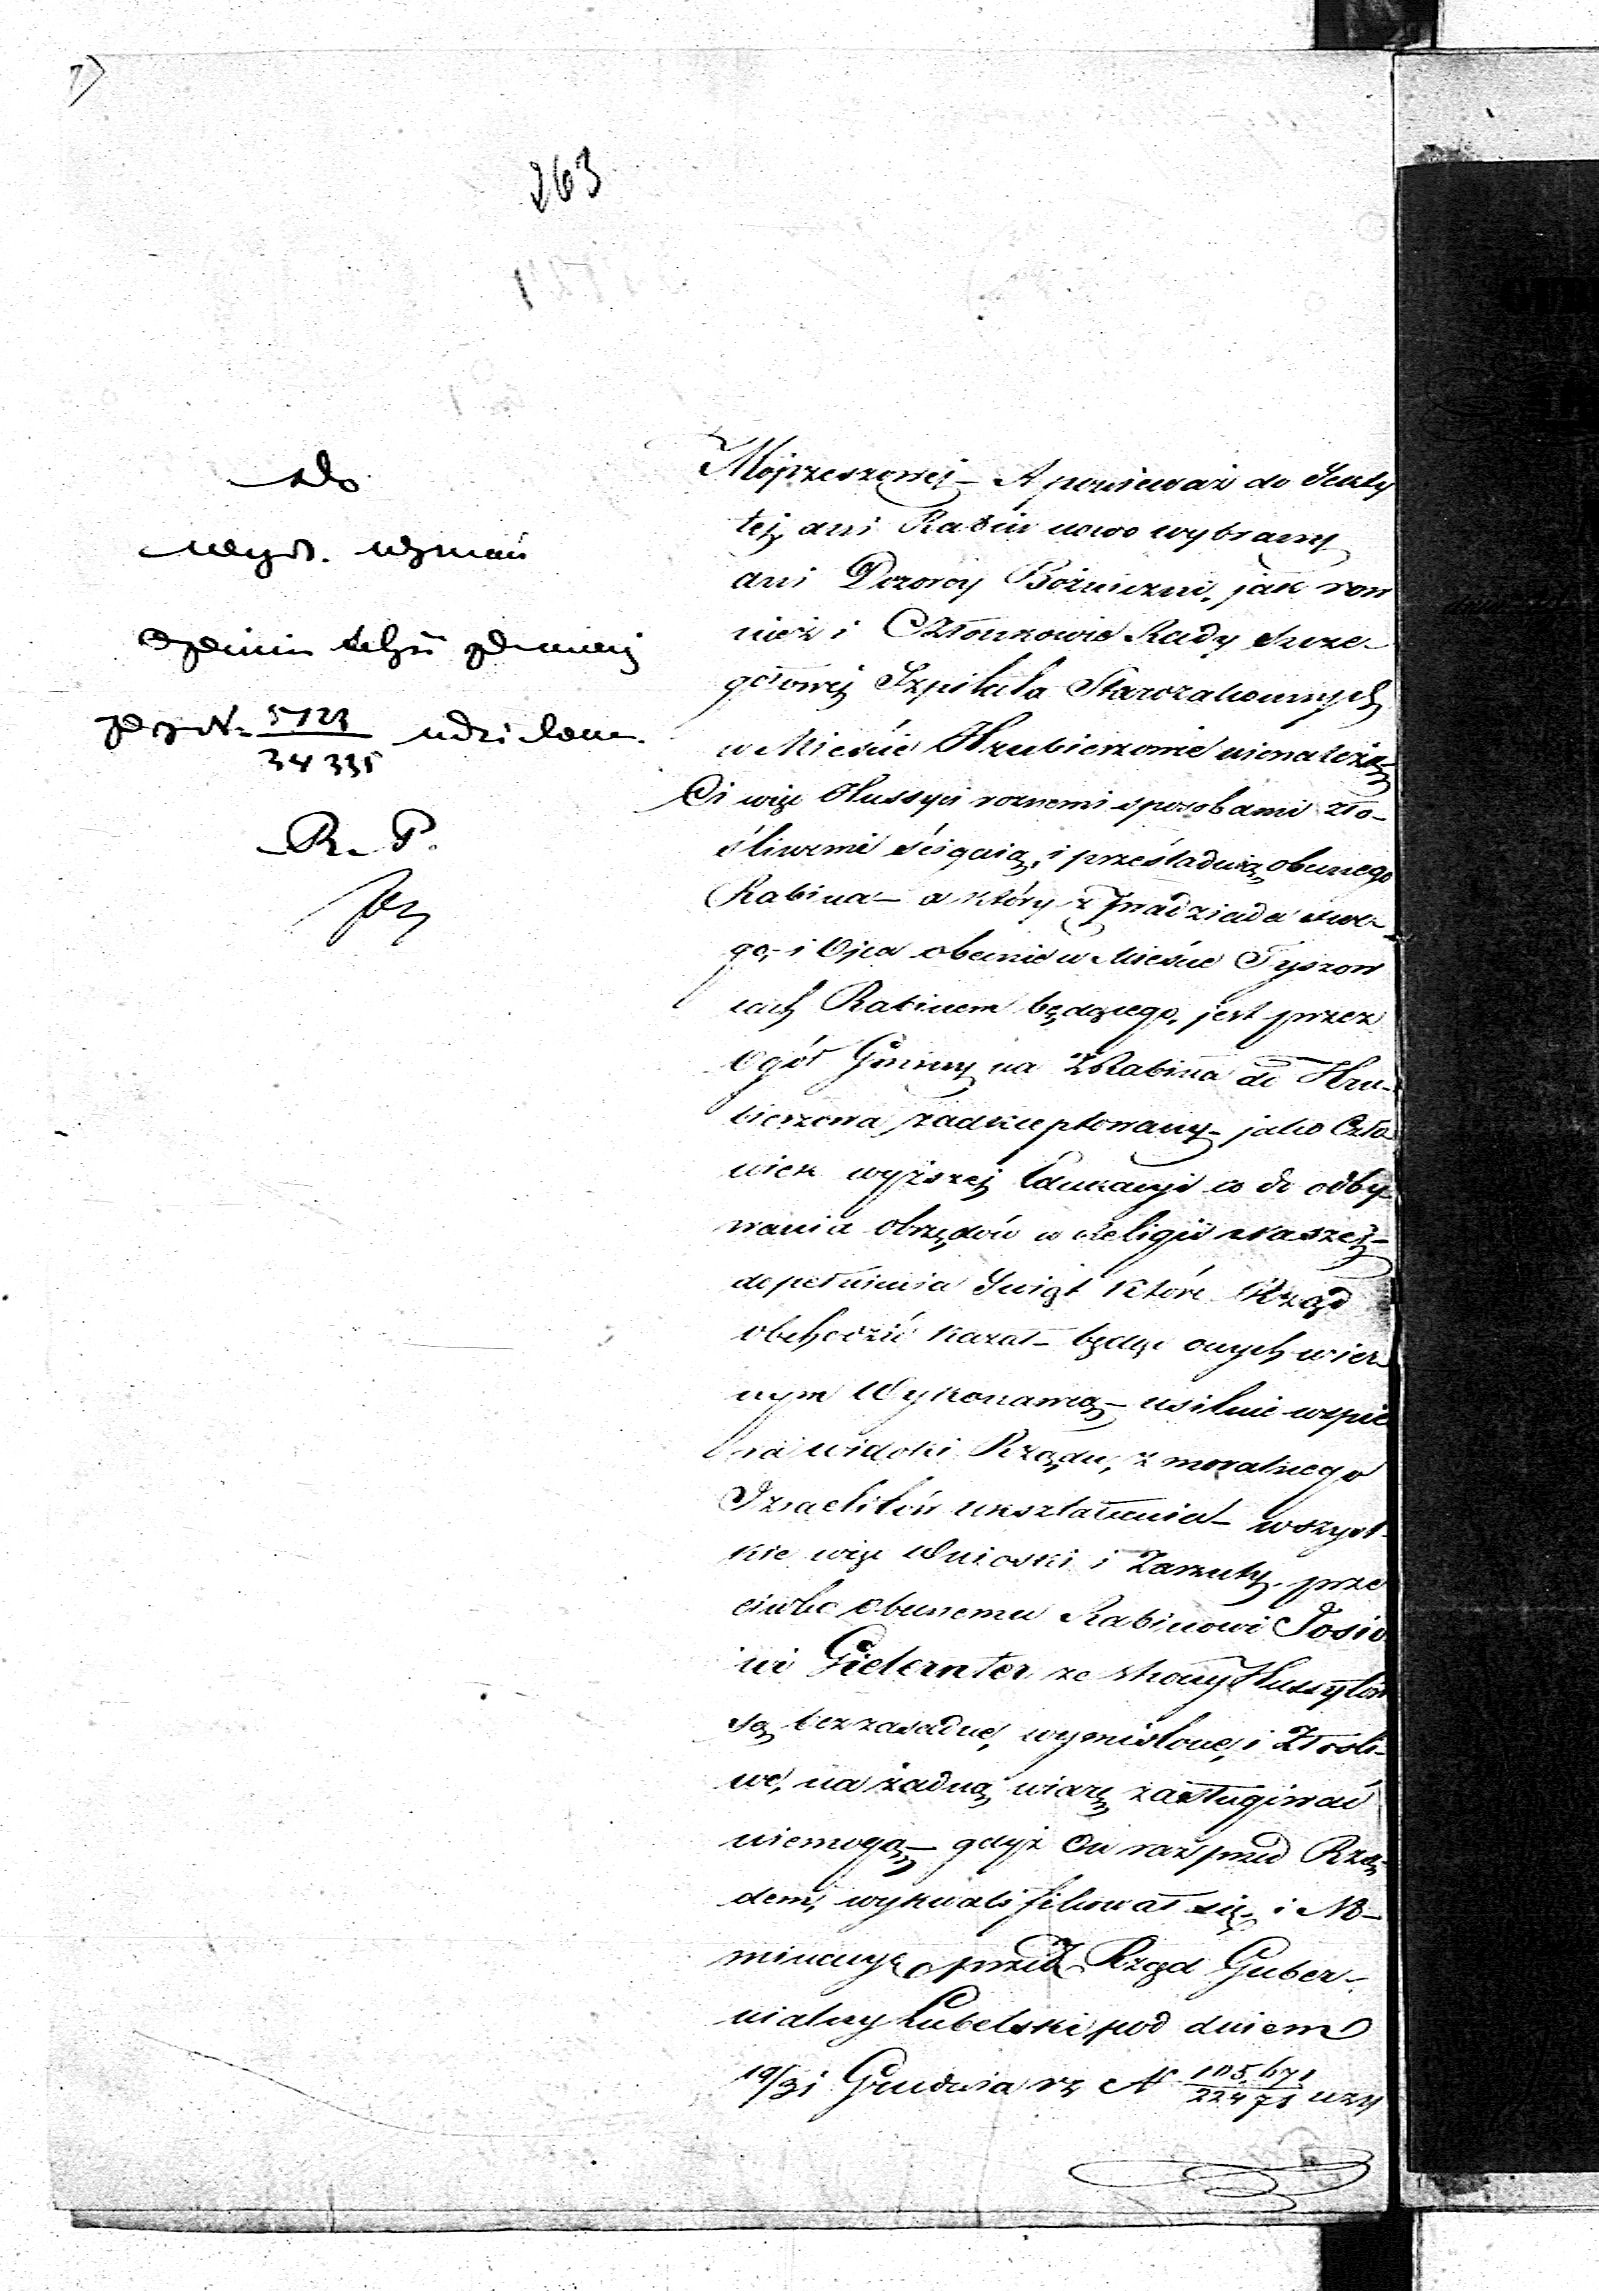 263
Ado
Wyd. Wyznań
34335
R. P.
Mojżeszowej – A ponieważ do Sekty
tej ani Rabin nowo wybrany
ani Dozorcy Bóżniczni, jak row
nież i Członkowie Rady Szcze-
gołowej Szpitala Starozakonnych
w Mieście Hrubieszowie nienależą
Ci więc Hussyci roznemi sposobami zło-
śliwemi ścigaią, i prześladuią obecnego
Rabina – a który z Pradziada swe-
go, i Ojca obecnie w Mieście Tyszow
cach Rabinem będącego, jest przez
Ogół Gminy na Rabina do Hru-
bieszowa zadkceptowany – jako Czło
wiek wyższej Edukacyi co do odby-
wania obrzędów w Religii Naszej –
dopełnienia Swiąt które Rząd
obchodzić kazał – będąc onych wier-
nym Wykonawcą – usilnie wspie
ra widoki Rządu, z moralnego
Izraelitów ukształcenia – wszyst-
kie więc Wnioski i Zarzuty, prze
ciwko obecnemu Rabinowi Josio
wi Gielernter ze strony Hussytów
są bezzasadne, wymislone, i Złośli-
we, na żadną wiarę zasługiwać
niemogą – gdyż On raz przed Rzą-
dem, wykwalifikował się, i No-
minacyę przez Rząd Guber-
nialny Lubelski pod dniem
19/31 Grudnia rz N 105,671/22471 uzy